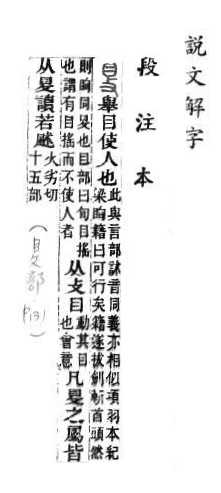 說文解字
段注本
舉目使人也
此與言部訹音同義亦相似項羽本紀
梁眴籍曰可行矣籍遂拔劍斬首頭然
則眴同𥄎也目部曰旬目搖
也謂有目搖而不使人者
从攴目
動其目
也會意
凡𥄎之屬皆
从𥄎讀若䫻
火劣切
十五部
(𥄎部 P131)